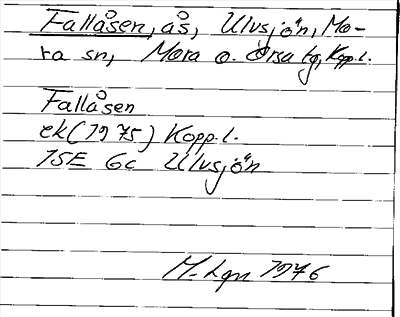 Fallåsen, ås, Ulvsjön, Mo-
ra sn, Mora o. Orsa tg, Kopp.l.
Fallåsen
ek (1975) Kopp.l.
15E 6c Ulvsjön
M. Lgn 1976